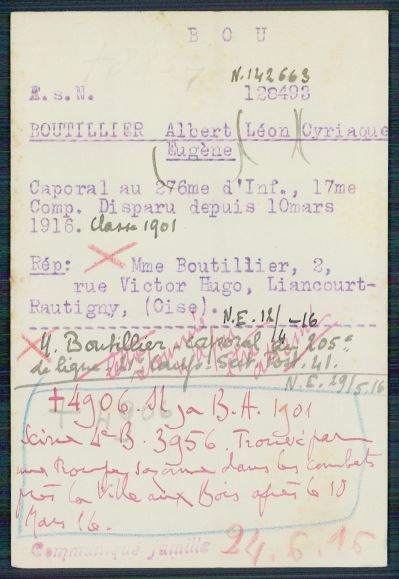 B O U
N.142663
E.s.N. 128493
BOUTILLIER Albert (Léon)(Cyriaque
(Eugène)
Caporal au 276me d'Inf., 17me
Comp. Disparu depuis 10mars
1916. Classe 1901
Rép: Mme Boutillier, 2,
rue Victor Hugo, Liancourt-
Rautigny, (Oise).
N.E. 12/ -16
M. Boutillier, caporal du 205e
de ligne - 21e Comp. - Sect. Post. 41.
N.E. 29/5.16
+4906. B.A. 1901
Seine 4e B. 3956. Trouvé par
une troupe saxonne dans les combats
près la Ville aux Bois après le 10
Mars 16.
Communiqué famille 24.6.16